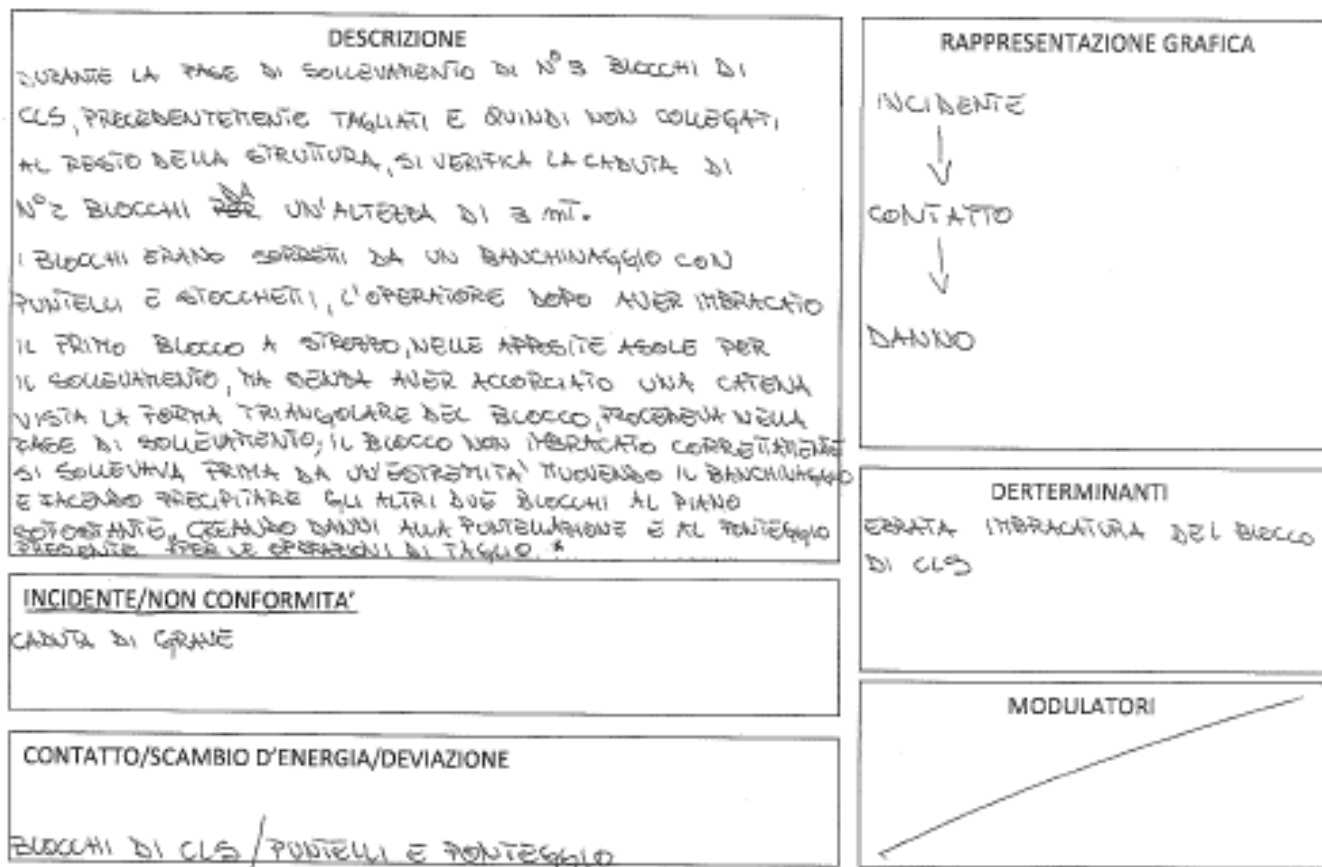 DESCRIZIONE
DURANTE LA FASE DI SOLLEVAMENTO DI N° 3 BLOCCHI DI
CLS, PRECEDENTEMENTE TAGLIATI E QUINDI NON COLLEGATI
AL RESTO DELLA STRUTTURA, SI VERIFICA LA CADUTA DI
N° 2 BLOCCHI DA UN'ALTEZZA DI 3 mT.
I BLOCCHI ERANO SORRETTI DA UN BANCHINAGGIO CON
PUNTELLI E STOCCHETTI, L'OPERATORE DOPO AVER IMBRACATO
IL PRIMO BLOCCO A STROZZO, NELLE APPOSITE ASOLE PER
IL SOLLEVAMENTO, MA SENZA AVER ACCORCIATO UNA CATENA
VISTA LA FORMA TRIANGOLARE DEL BLOCCO, PROCEDEVA NELLA
FASE DI SOLLEVAMENTO; IL BLOCCO NON IMBRACATO CORRETTAMENTE
SI SOLLEVAVA PRIMA DA UN'ESTREMITA' MUOVENDO IL BANCHINAGGIO
E FACENDO PRECIPITARE GLI ALTRI DUE BLOCCHI AL PIANO
SOTTOSTANTE, CREANDO DANNI ALLA PUNTELLAZIONE E AL PONTEGGIO
PRESENTE PER LE OPERAZIONI DI TAGLIO. *
INCIDENTE/NON CONFORMITA'
CADUTA DI GRAVE
CONTATTO/SCAMBIO D'ENERGIA/DEVIAZIONE
BLOCCHI DI CLS / PUNTELLI E PONTEGGIO
RAPPRESENTAZIONE GRAFICA
INCIDENTE
CONTATTO
DANNO
DERTERMINANTI
ERRATA IMBRACATURA DEL BLOCCO
DI CLS
MODULATORI